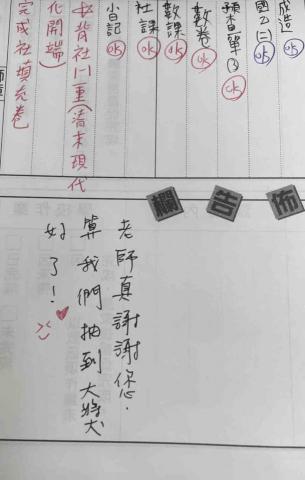 成造 ok
國乙(二) ok
預查單(3) ok
數卷 ok
數課 ok
社課 ok
小日記 ok
背社二1重(清末現代
化開端)
完成社填充卷
佈告欄
老師真謝謝您.
算我們抽到大獎
好了!